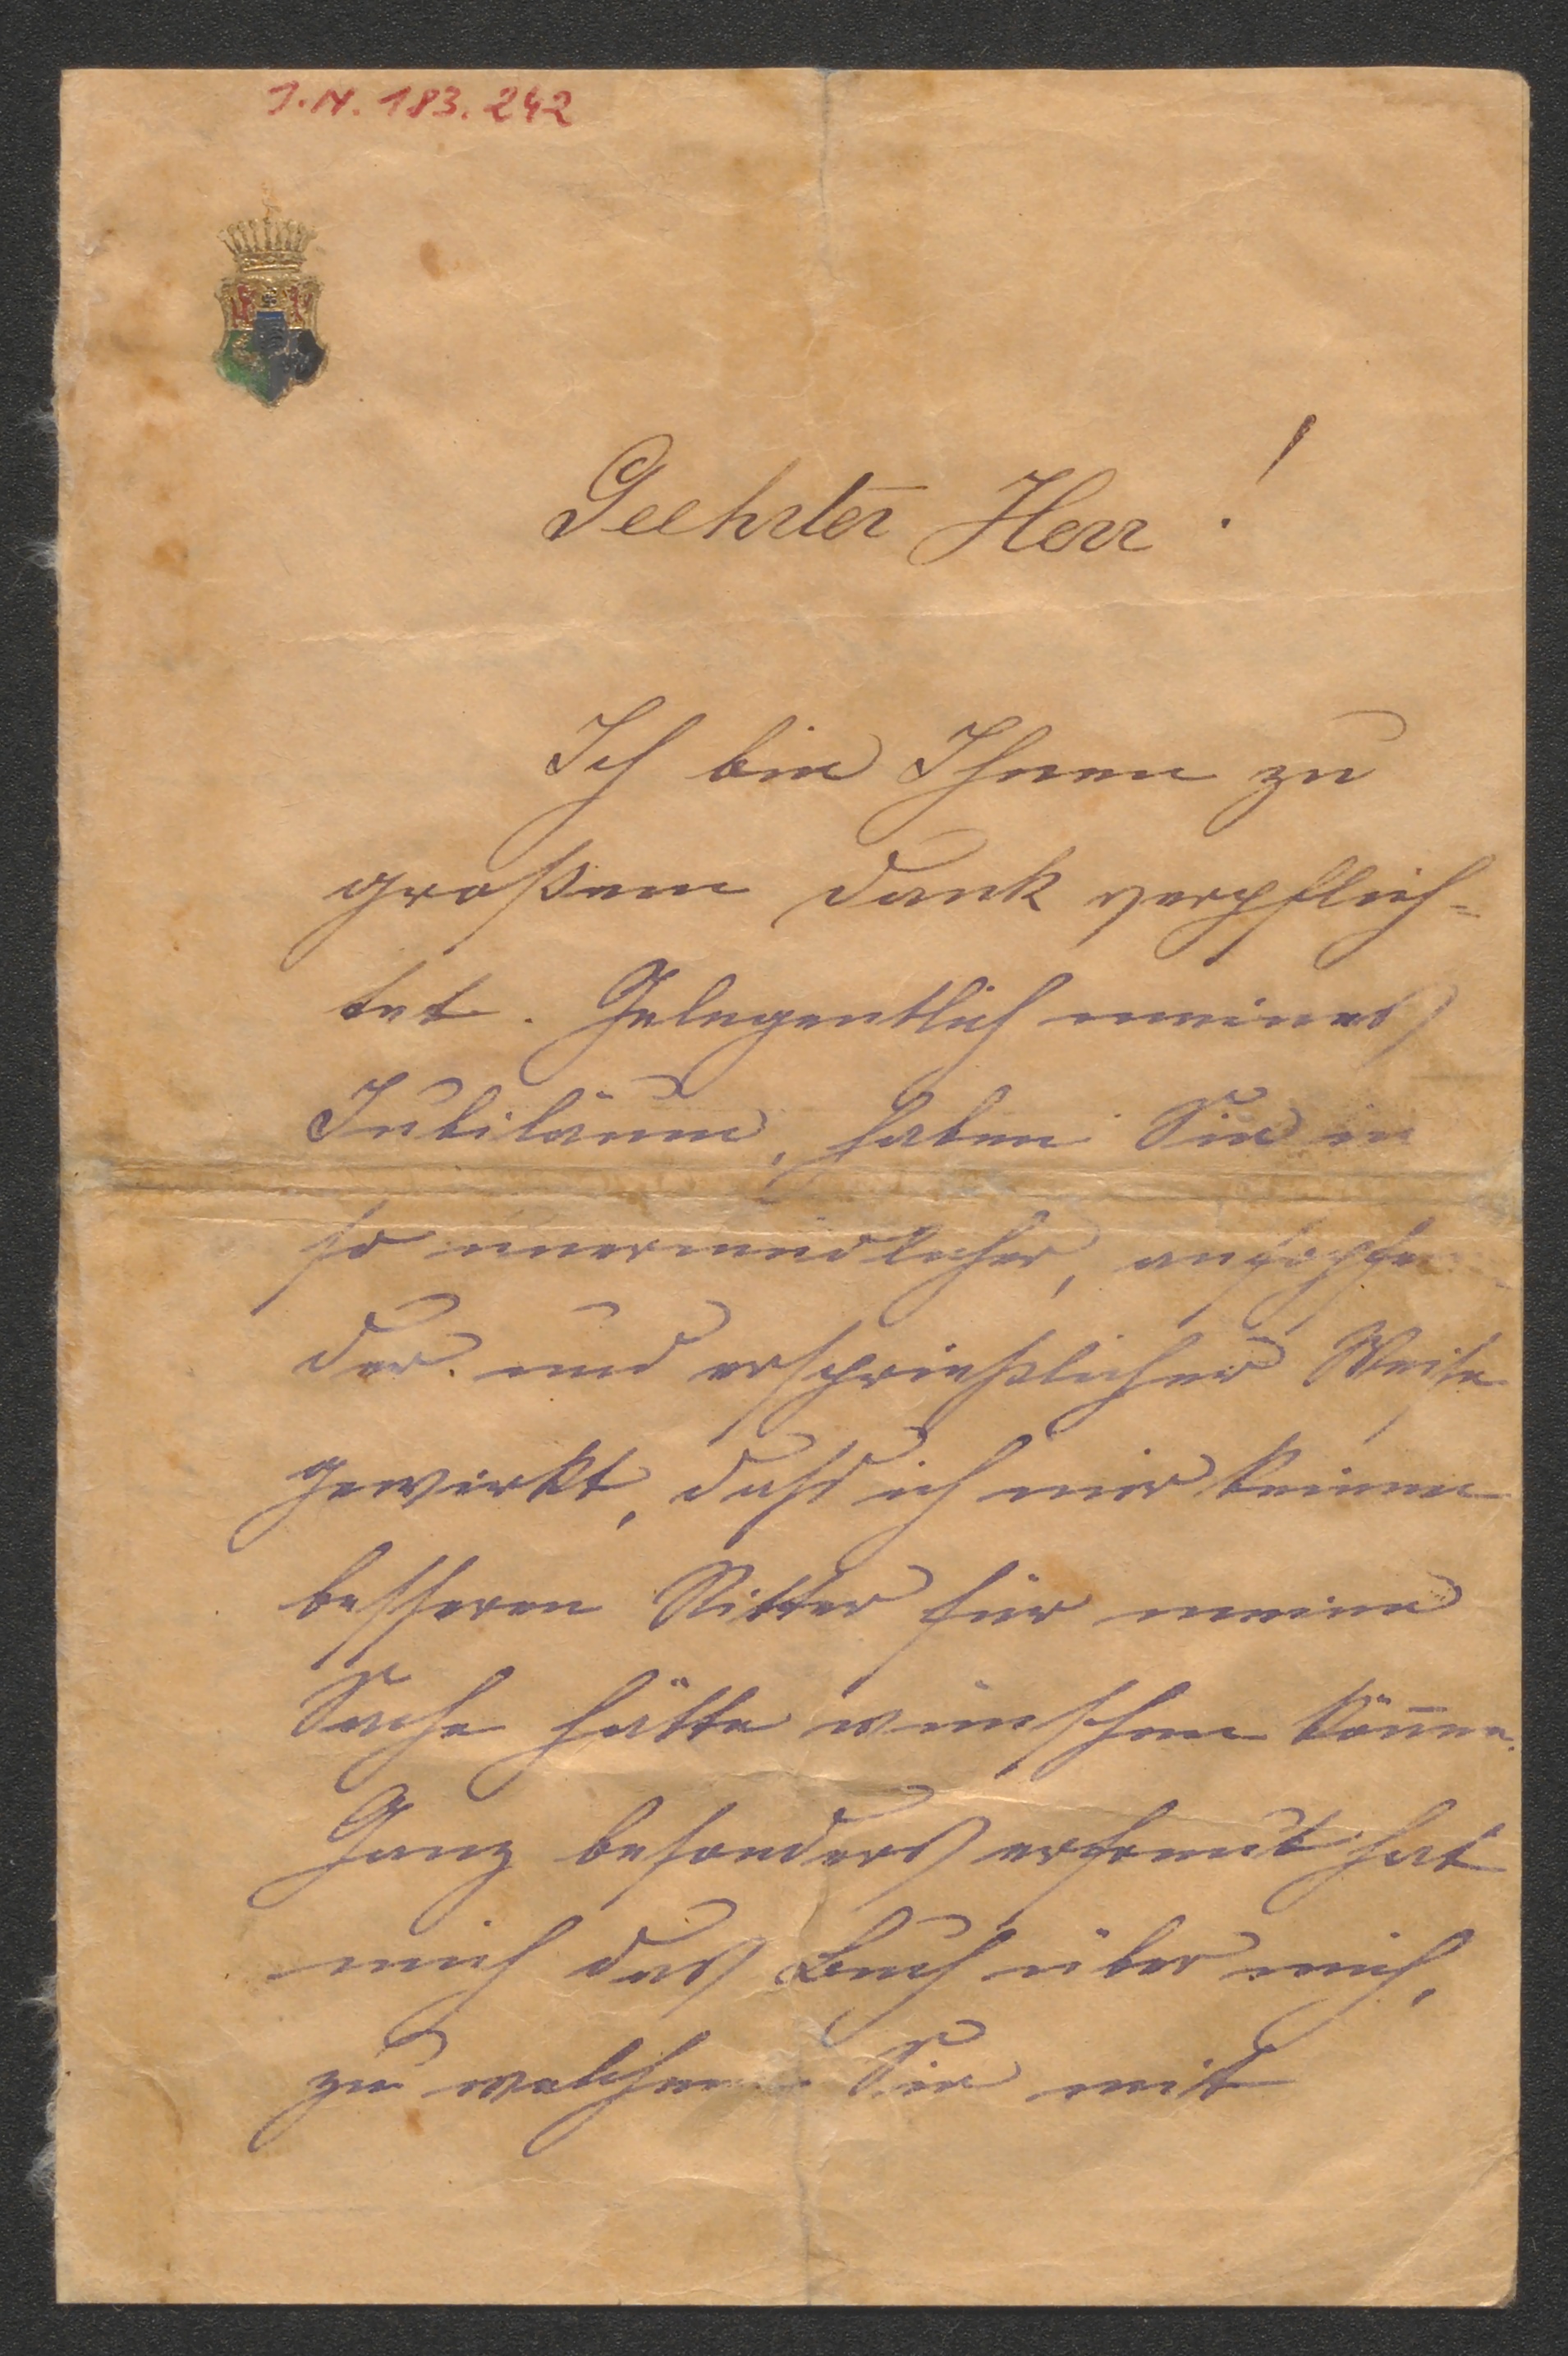 I.N. 183.242
Geehrter Herr!
Ich bin Ihnen zu
großem Dank verpflich=
tet. Gelegentlich meines
Jubiläum, haben Sie in
so unermüdlicher, aufopfern
der und ersprießlicher Weise
gewirkt, daß ich mir keinen
besseren Ritter für meine
Sache hätte wünschen könne.
Ganz besonders erfreut hat
mich das Buch über mich,
zu welchem Sie mit